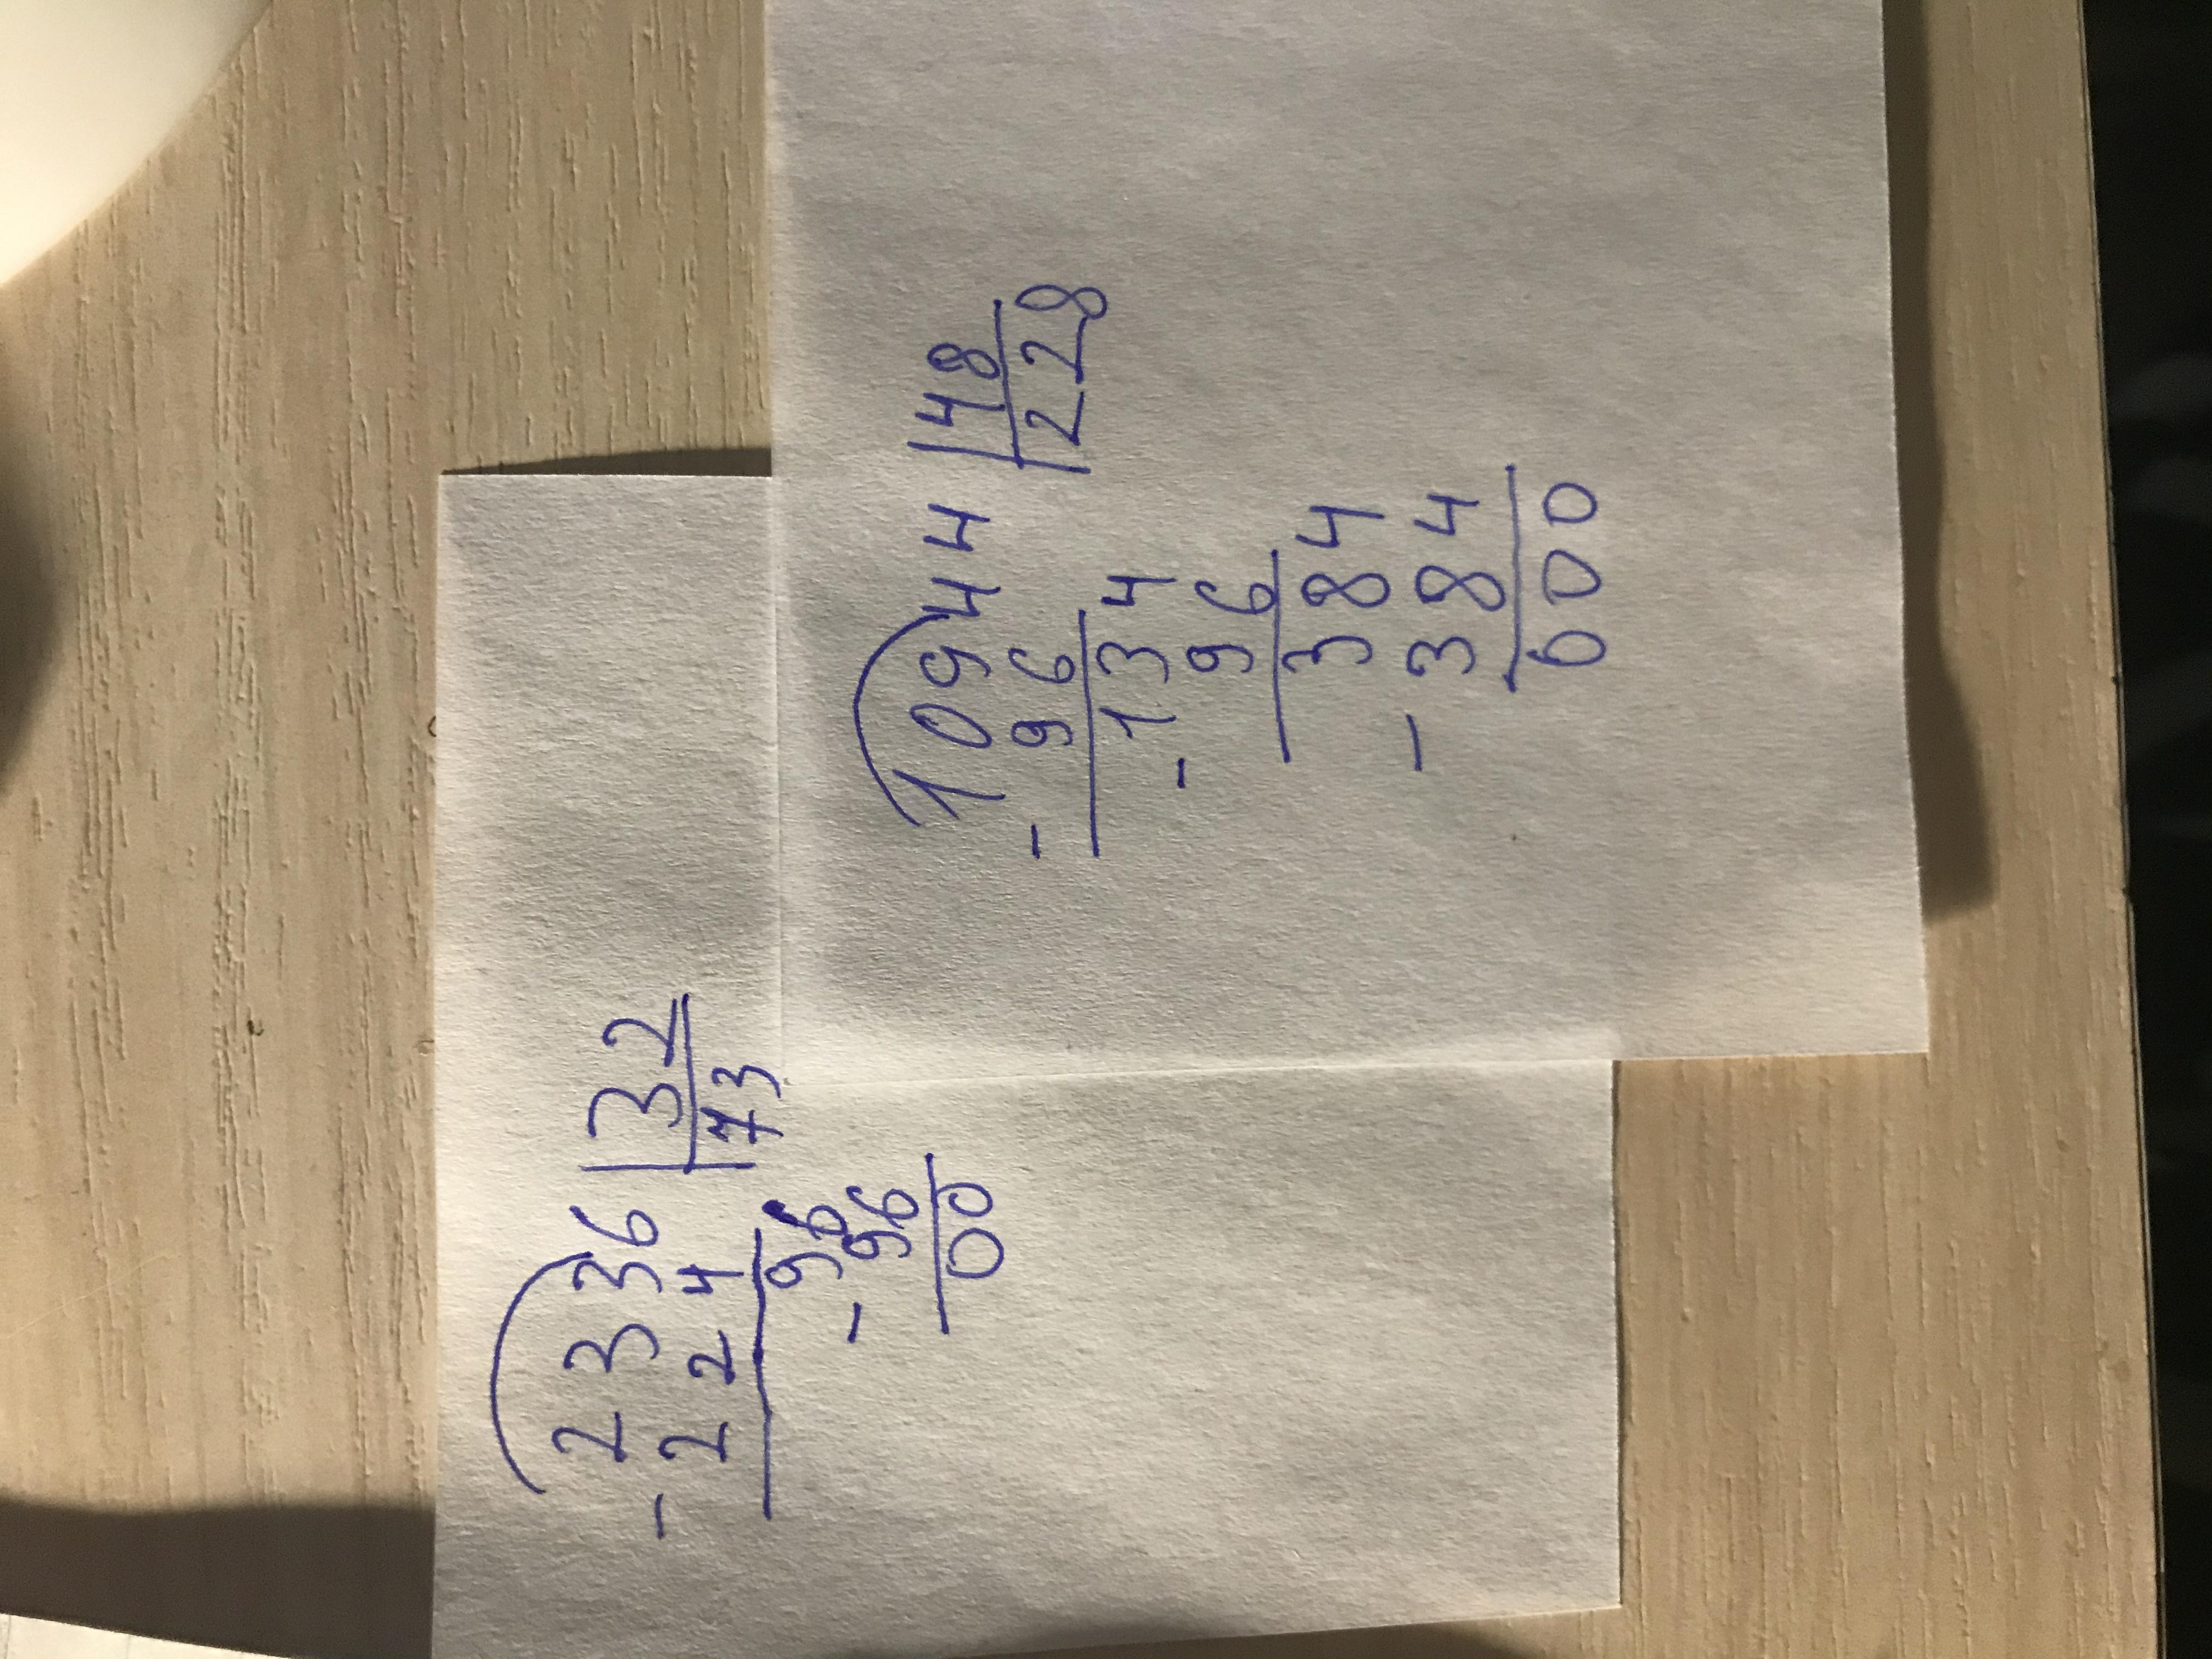 2336 |32
- 224 |73
96
- 96
00
10944 |48
- 96 |228
- 134
96
384
- 384
000